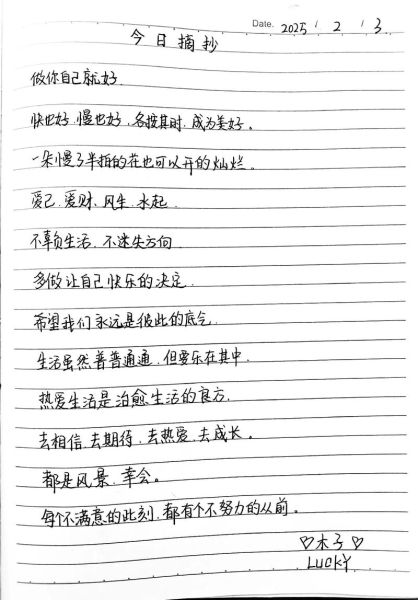 Date. 2025 / 2 / 3
今日摘抄
做你自己就好.
快也好.慢也好.各按其时.成为美好。
一朵慢了半拍的花也可以开的灿烂。
爱己.爱财.风生.水起.
不辜负生活.不迷失方向
多做让自己快乐的决定.
希望我们永远是彼此的底气.
生活虽然普普通通.但要乐在其中.
热爱生活是治愈生活的良方.
去相信.去期待.去热爱.去成长。
都是风景.幸会。
每个不满意的此刻.都有个不努力的从前。
♡木子♡
LUCKY